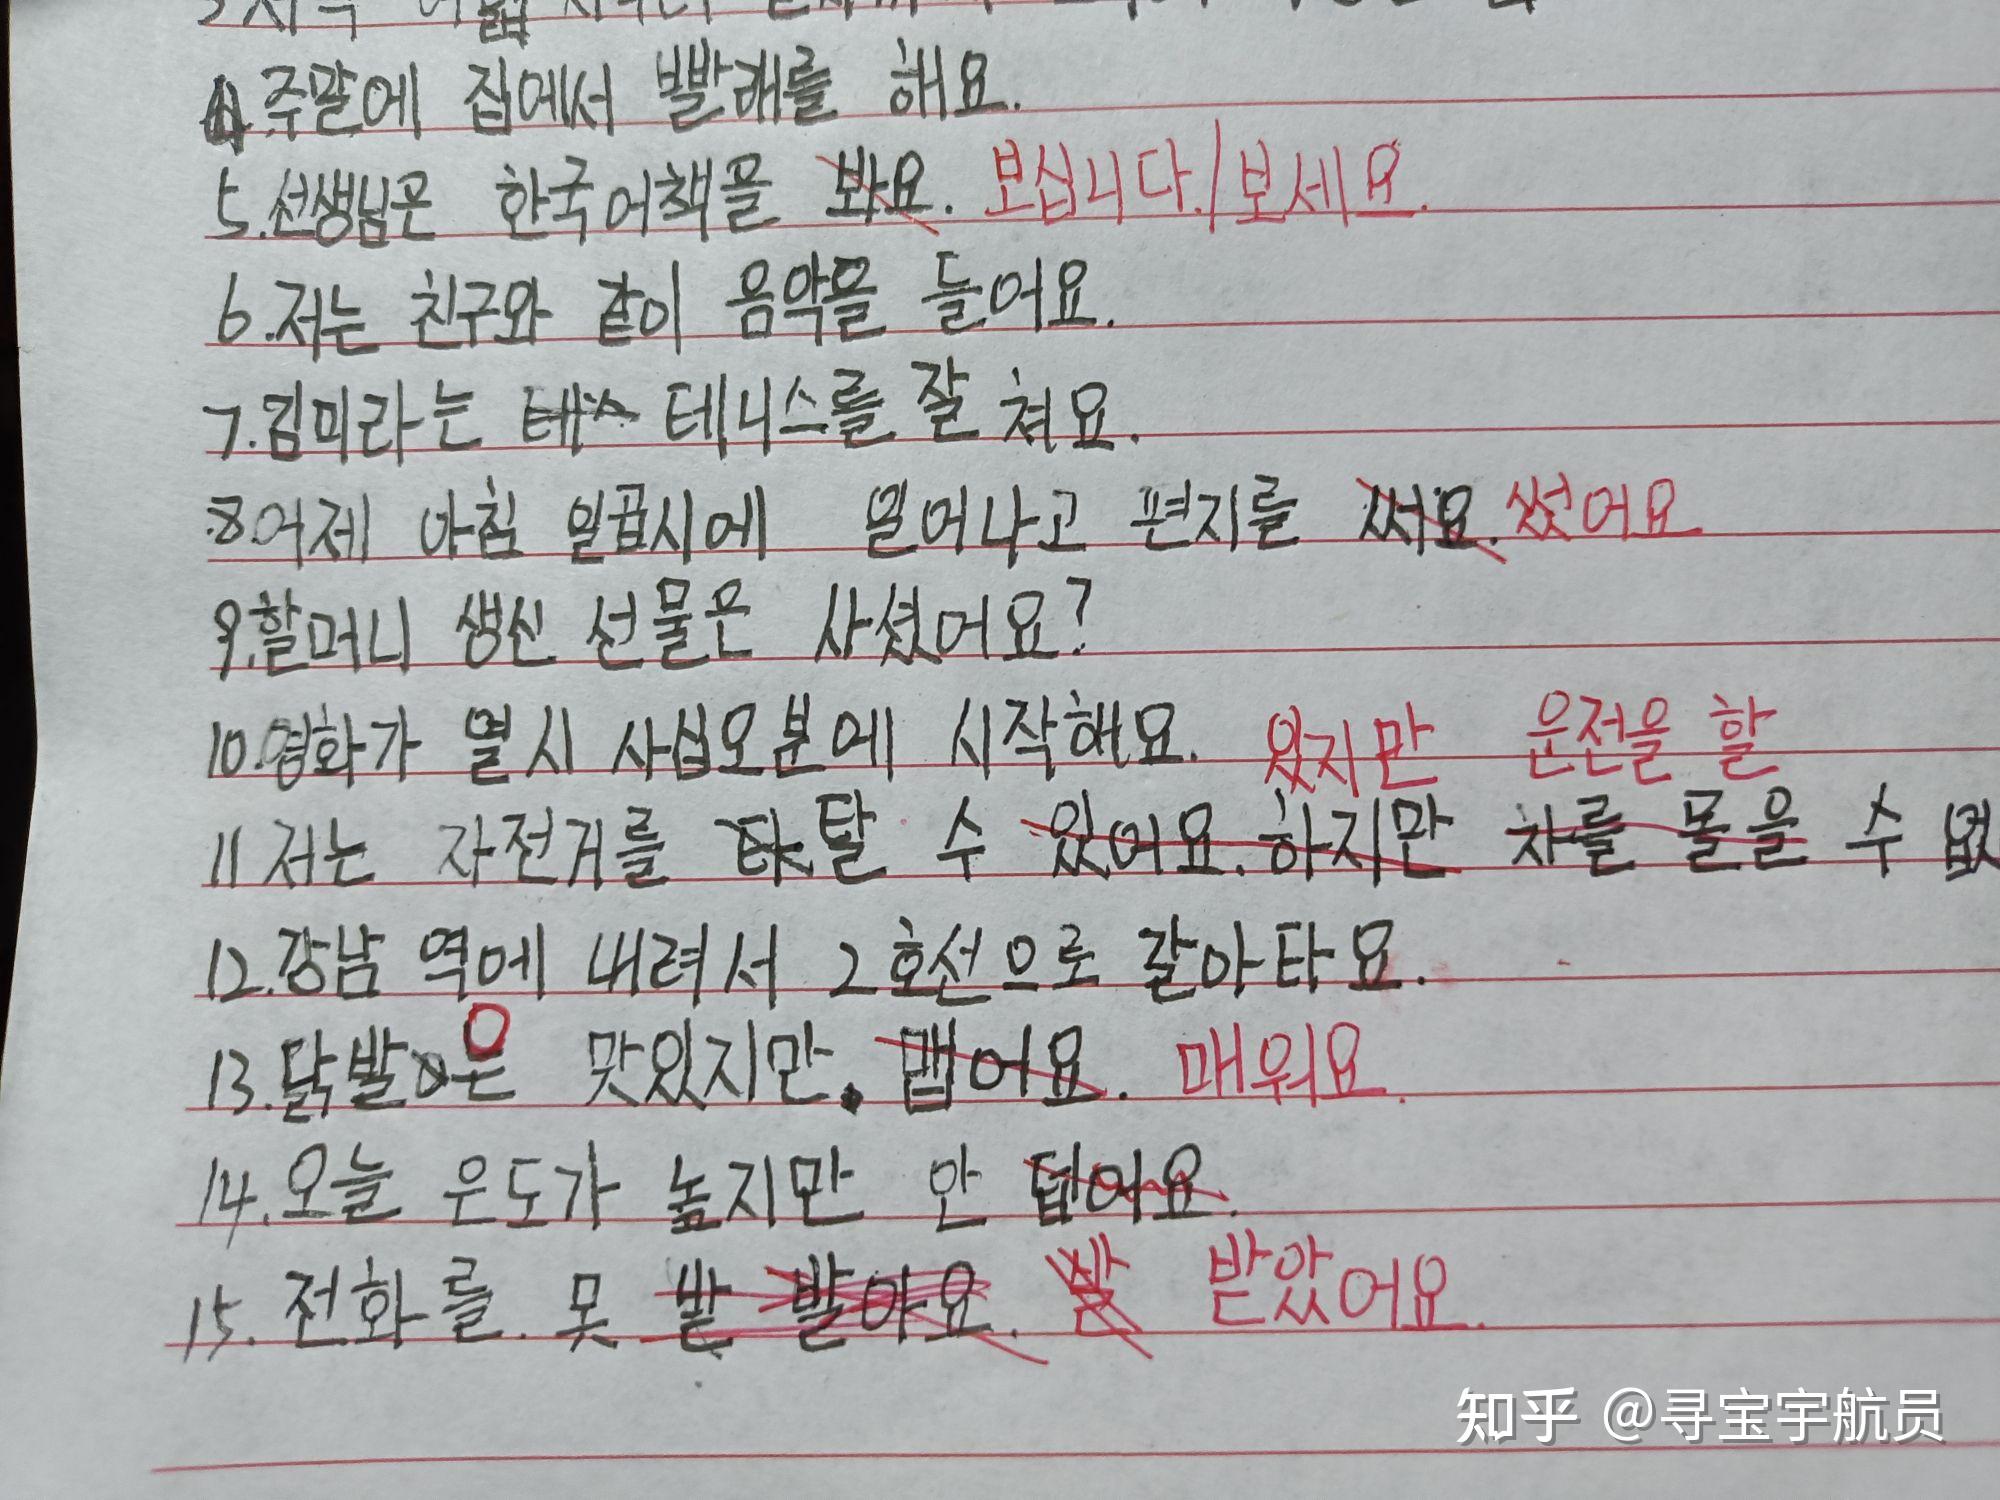 4.주말에 집에서 빨래를 해요.
5.선생님은 한국어책을 봐요. 보십니다./보세요.
6.저는 친구와 같이 음악을 들어요.
7.김미라는 테스 테니스를 잘 쳐요.
8.어제 아침 일곱시에 일어나고 편지를 써요. 썼어요
9.할머니 생신 선물은 사셨어요?
10.영화가 열시 사십오분에 시작해요.
있지만 운전을 할
11 저는 자전거를 타 탈 수 있어요. 하지만 차를 몰을 수 없
12.강남 역에 내려서 2호선으로 갈아타요.
13.닭발은 맛있지만. 맵어요. 매워요.
14.오늘 온도가 높지만 안 덥어요.
15. 전화를 못 받았어요.
知乎 @寻宝宇航员